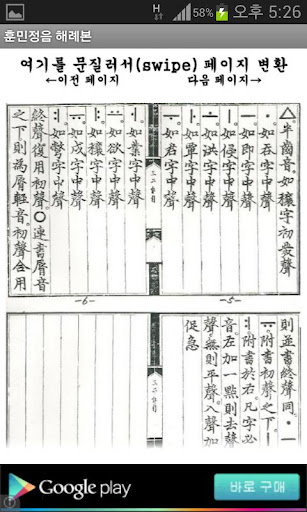 오후 5:26
훈민정음 해례본
여기를 문질러서(swipe) 페이지 변환
←이전 페이지 다음 페이지→
△。半齒音。如穰字初發聲
ㆍ。如呑字中聲
ㅡ。如即字中聲
ㅣ。如侵字中聲
ㅗ。如洪字中聲
ㅏ。如覃字中聲
ㅜ。如君字中聲
ㅓ。如業字中聲
ㅛ。如欲字中聲
ㅑ。如穰字中聲
ㅠ。如戌字中聲
ㅕ。如彆字中聲
終聲復用初聲。○連書脣音
之下則為脣輕音初聲合用
-6- -5-
則並書終聲同。ㆍ
附書初聲之下。
附書於右。凡字必
音左加一點則去
聲無則平聲入聲加
促急
Google play
바로 구매